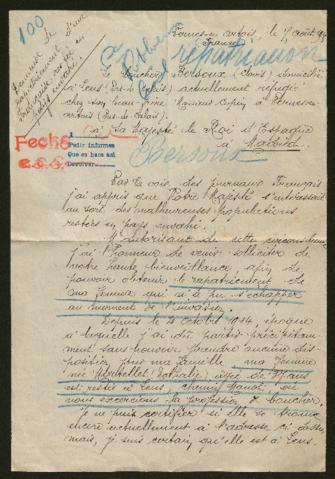 100
Demande d'une
Fouquières en artois le 7 août
(France)
repatriacion
Le Boucher Bersoux (Louis) domicilié
à Lens (Pas-de-Calais) actuellement réfugié
chez son beau-frère Monsieur
artois (Pas de Calais).
à Sa Majesté le Roi d'Espagne
à Madrid
Fecho
Pedir informes
Que se hace así
Devolver
Bersoux
Par la voix des journaux Français
j'ai appris que Votre Majesté s'intéressait
au sort des malheureuses populations
restées en pays envahi.
M'autorisant de cette circonstance
j'ai l'honneur de venir solliciter de
votre haute bienveillance, afin de
pouvoir obtenir le rapatriement de
ma femme qui n'a pu s'échapper
au moment de l'invasion.
Depuis le 4 octobre 1914, époque
à laquelle j'ai dû partir précipitam
ment sans pouvoir prendre aucune dis
position pour ma famille ma femme
née (Nathalie) âgée de ans
est restée à Lens, chemin Manot, où
nous exercions la profession de boucher.
Je ne puis certifier si elle se trouve
encore actuellement à l'adresse ci dessus
mais, je suis certain qu'elle est à Lens.